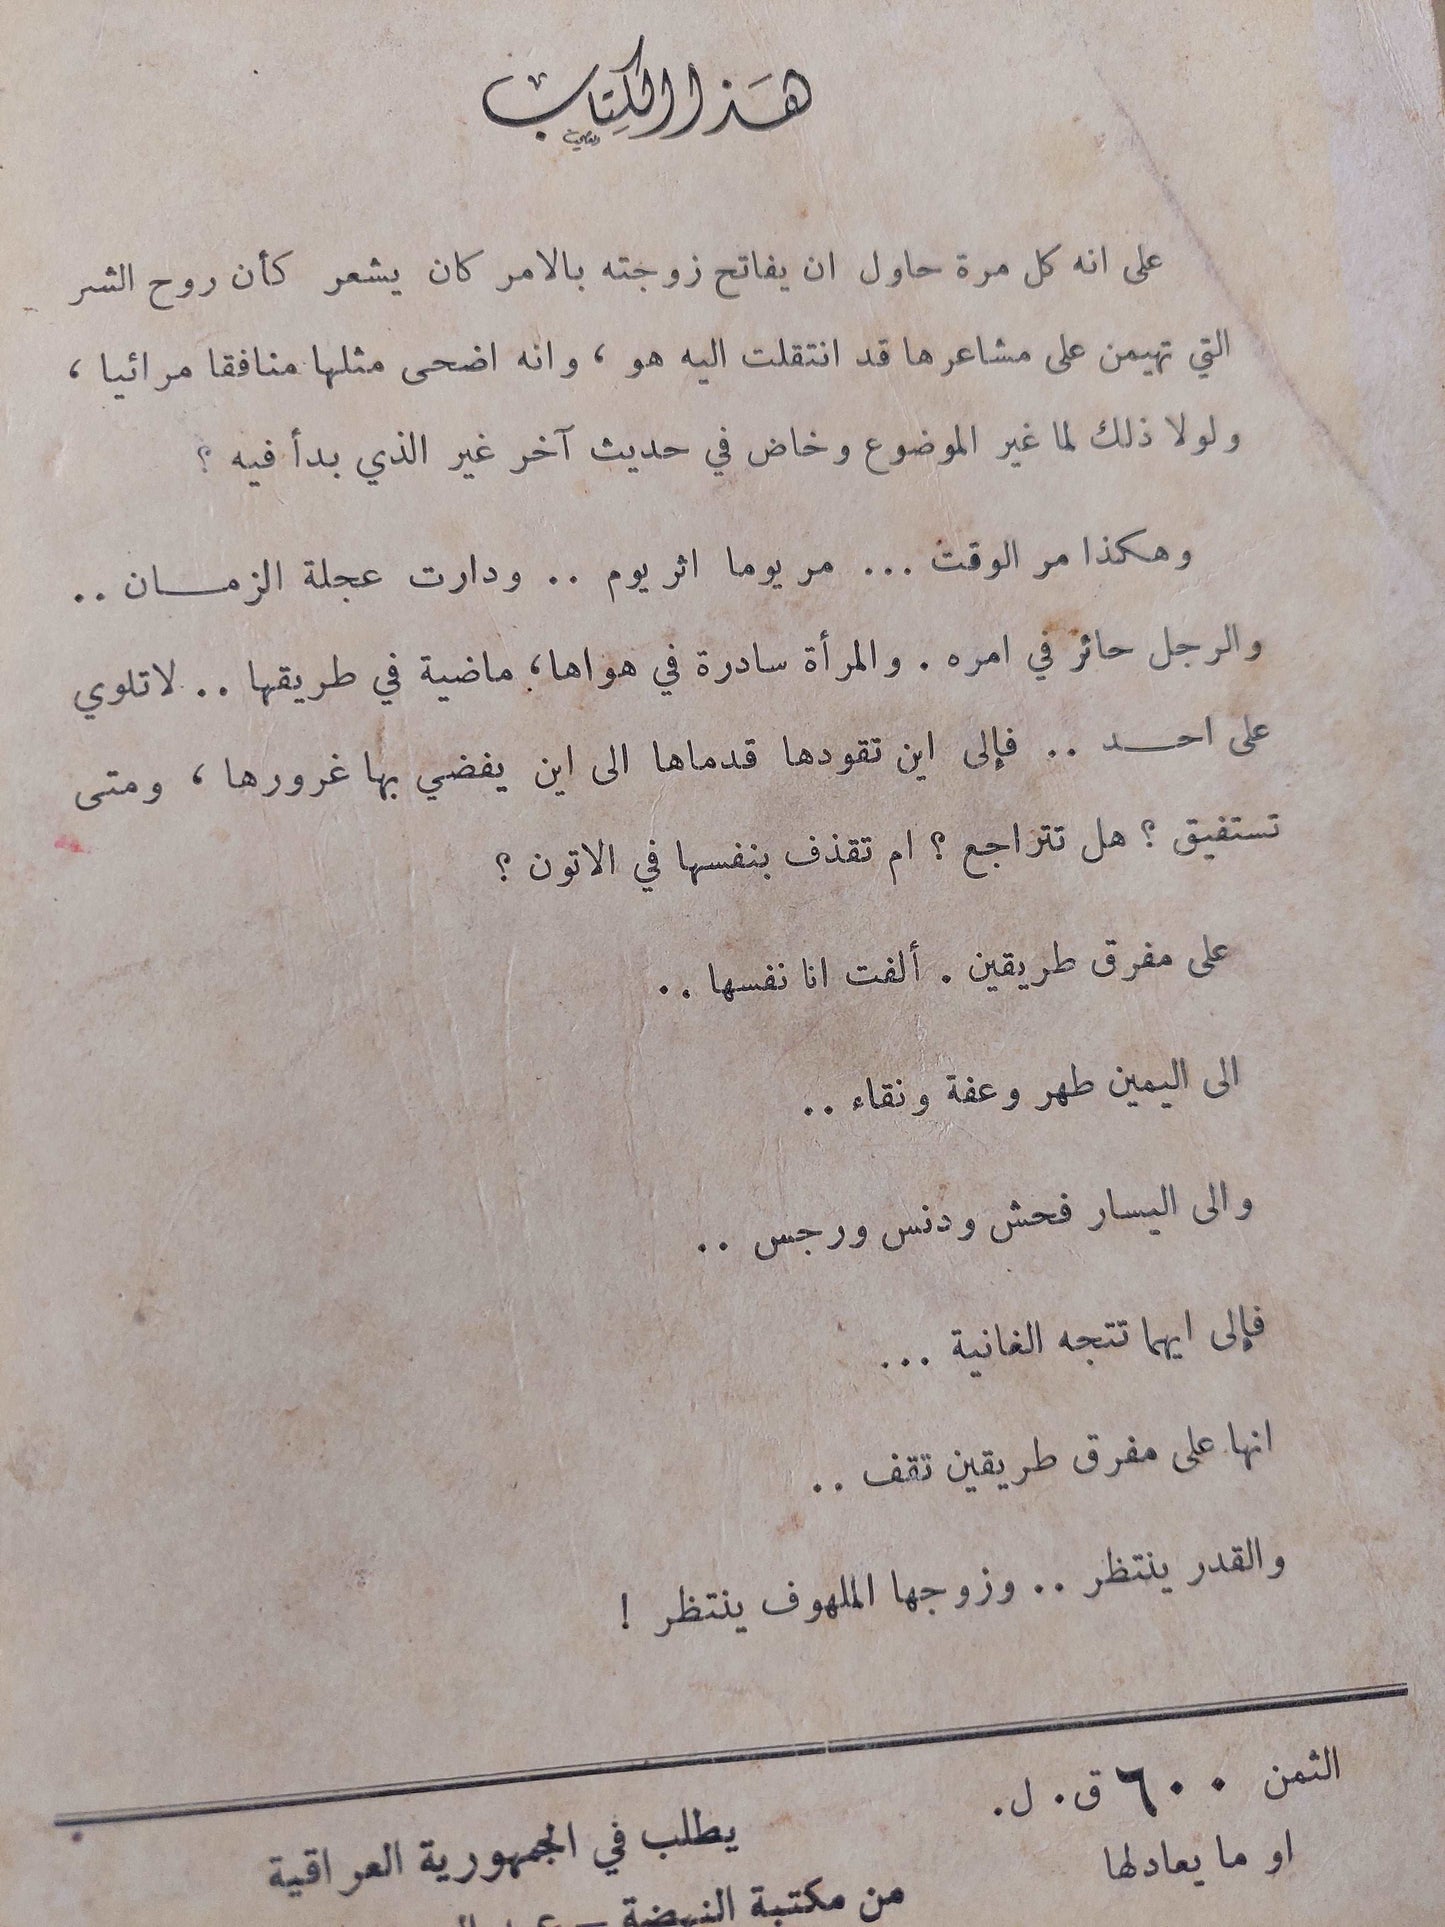 هَذا الكِتاب
على انه كل مرة حاول ان يفاتح زوجته بالامر كان يشعر كأن روح الشر
التي تهيمن على مشاعرها قد انتقلت اليه هو ، وانه اضحى مثلها منافقا مرائيا ،
ولولا ذلك لما غير الموضوع وخاض في حديث آخر غير الذي بدأ فيه ؟
وهكذا مر الوقت ... مر يوما اثر يوم .. ودارت عجلة الزمــان ..
والرجل حائر في امره . والمرأة سادرة في هواها ، ماضية في طريقها .. لاتلوي
على احــد .. فإلى اين تقودها قدماها الى اين يفضي بها غرورها ، ومتى
تستفيق ؟ هل تتراجع ؟ ام تقذف بنفسها في الاتون ؟
على مفرق طريقين . ألفت انا نفسها ..
الى اليمين طهر وعفة ونقاء ..
والى اليسار فحش ودنس ورجس ..
فإلى ايهما تتجه الغانية ...
انها على مفرق طريقين تقف ..
والقدر ينتظر .. وزوجها الملهوف ينتظر !
الثمن ٦٠٠ ق. ل.
او ما يعادلها
يطلب في الجمهورية العراقية
من مكتبة النهضة –